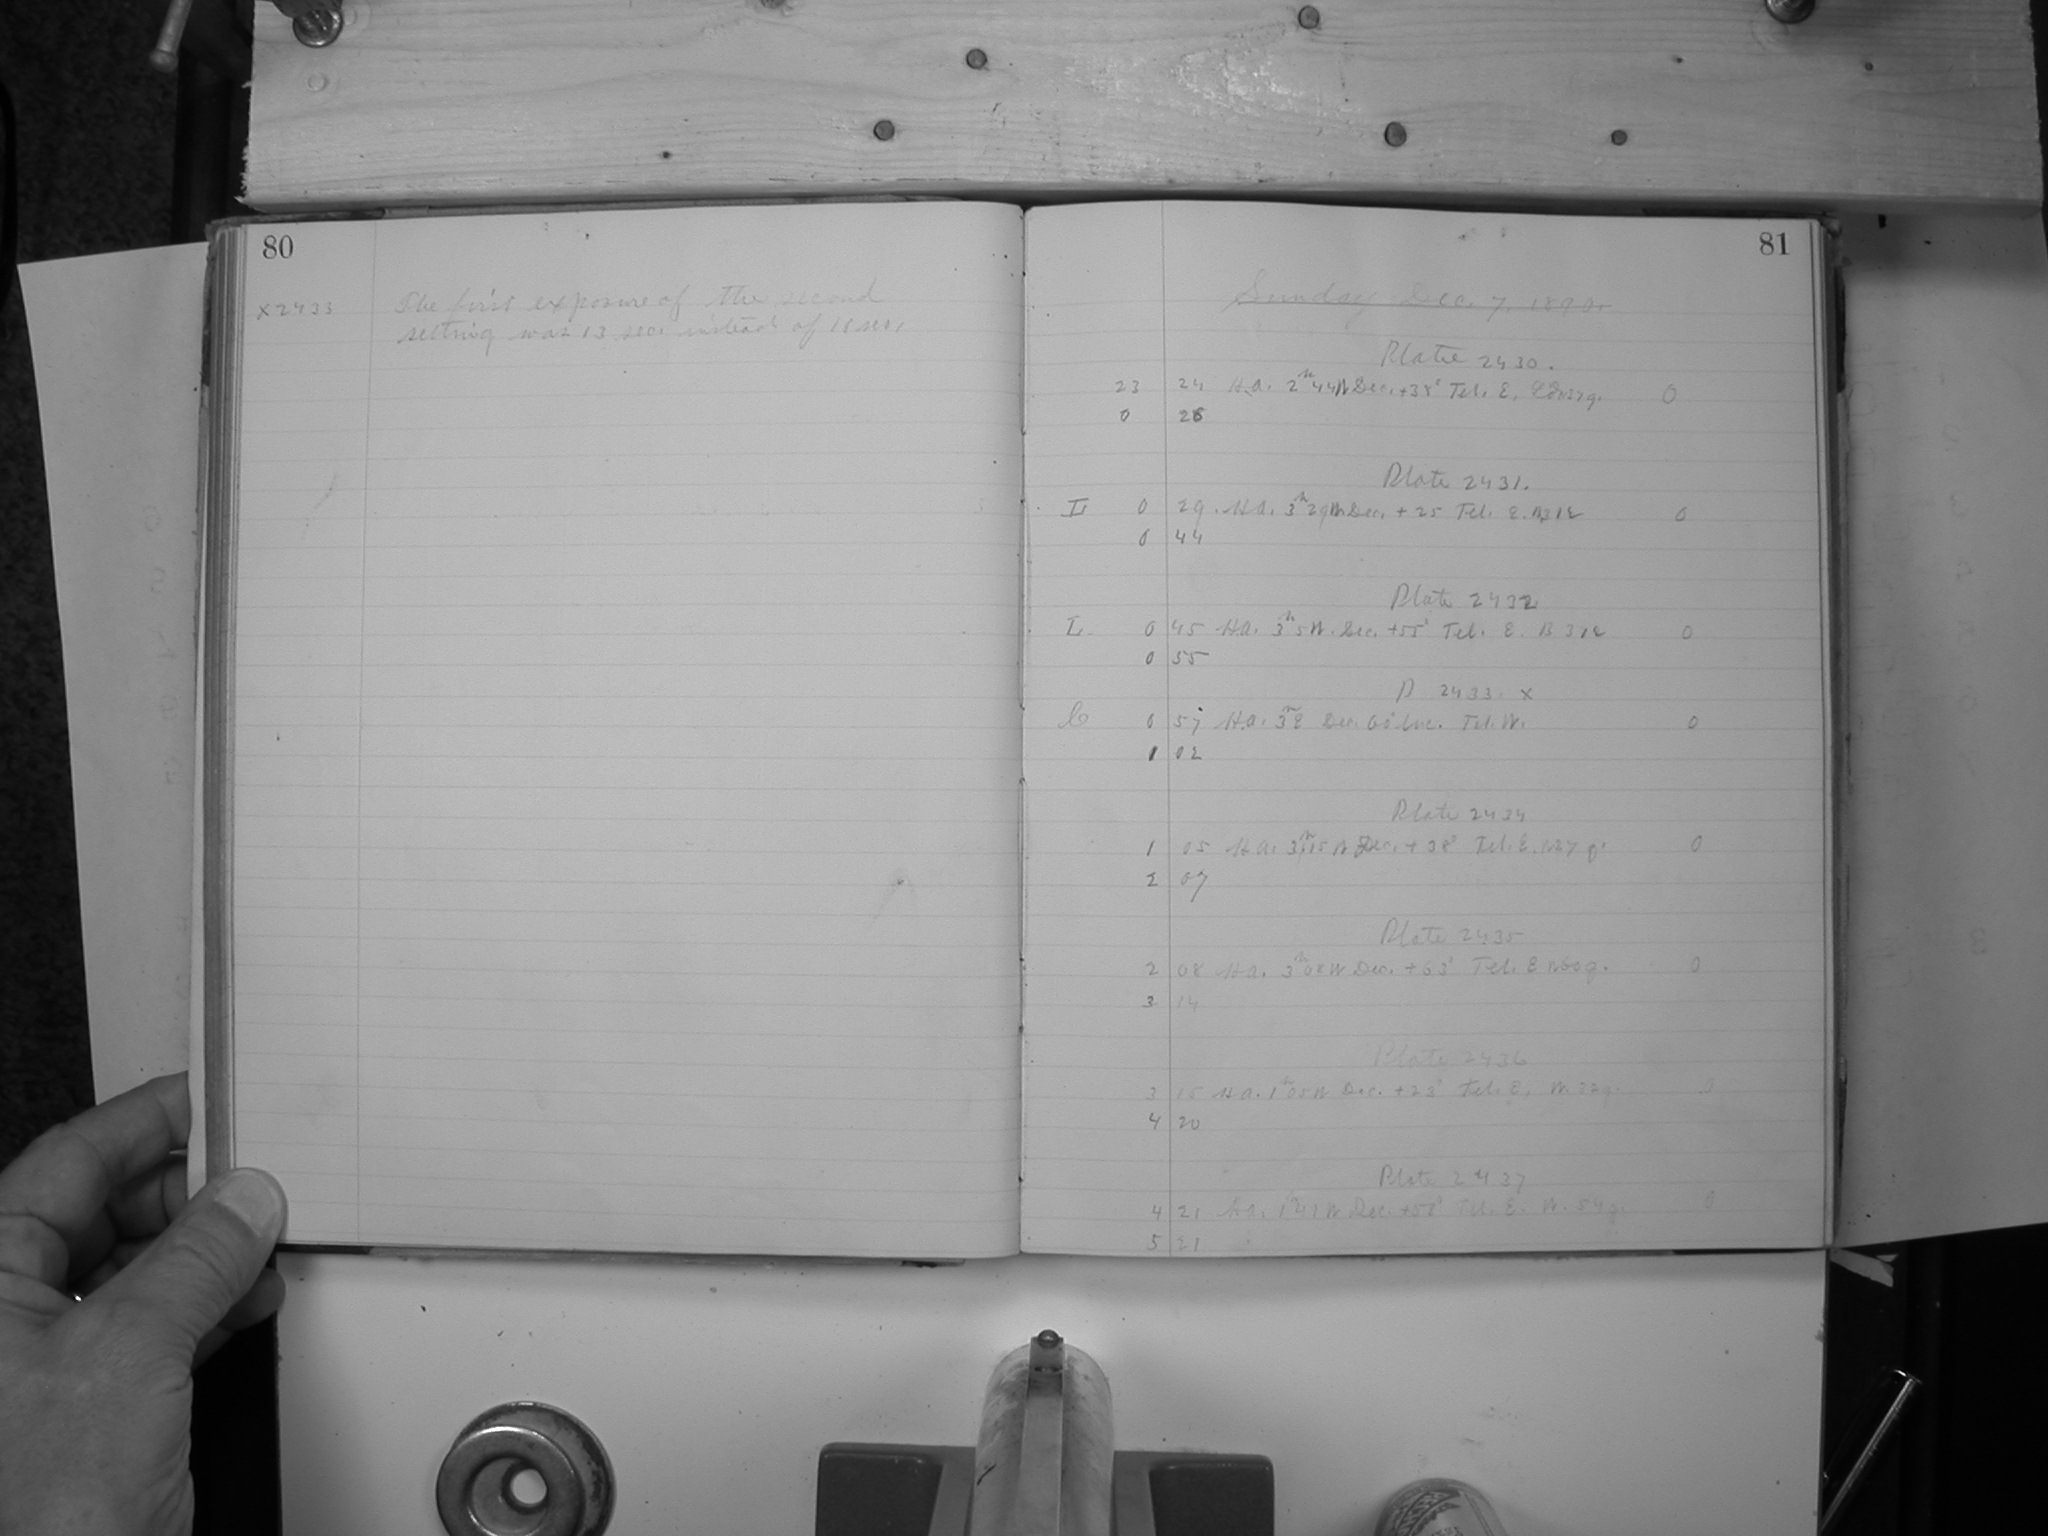 80
x2433 The first exposure of the second
setting was 13 sec. instead of 18 sec.
81
Sunday Dec. 7, 1890.
Plate 2430.
23 24 H.A. 2h 44 W Dec. +38° Tel. E. 0
0 26
Plate 2431.
L 0 29 H.A. 3h 29 W Dec. +25 Tel. E. B 312 0
0 44
Plate 2432
L 0 45 H.A. 3h 5 W. Dec. +55° Tel. E. B 312 0
0 55
P 2433. x
C 0 57 H.A. 3h E Dec. 60° Tel. W. 0
1 02
Plate 2434
1 05 H.A. 3h 15 W Dec. +38° Tel. E. 0
2 07
Plate 2435
2 08 H.A. 3h 08 W Dec. +63° Tel. E 0
3 14
Plate 2436
3 15 H.A. 1h 05 W Dec. +23° Tel. E. W. 22 g.
4 20
Plate 2437
4 21 H.A. 1h 41 W Dec. Tel. E. W. 54 g. 0
5 21